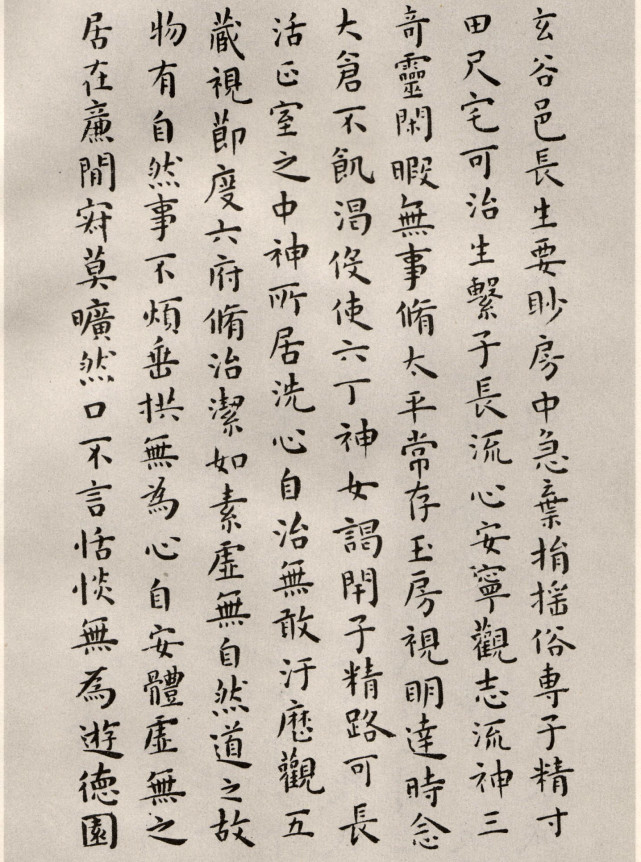 玄谷邑長生要眇房中急棄捐搖俗専子精寸
田尺宅可治生繫子長流心安寧觀志流神三
奇靈閑暇無事脩太平常存玉房視明達時念
大倉不飢渴伇使六丁神女謁閇子精路可長
活正室之中神所居洗心自治無敢汙歷觀五
藏視節度六府脩治潔如素虛無自然道之故
物有自然事不煩垂拱無為心自安體虛無之
居在廉間寂莫曠然口不言恬惔無為遊德園